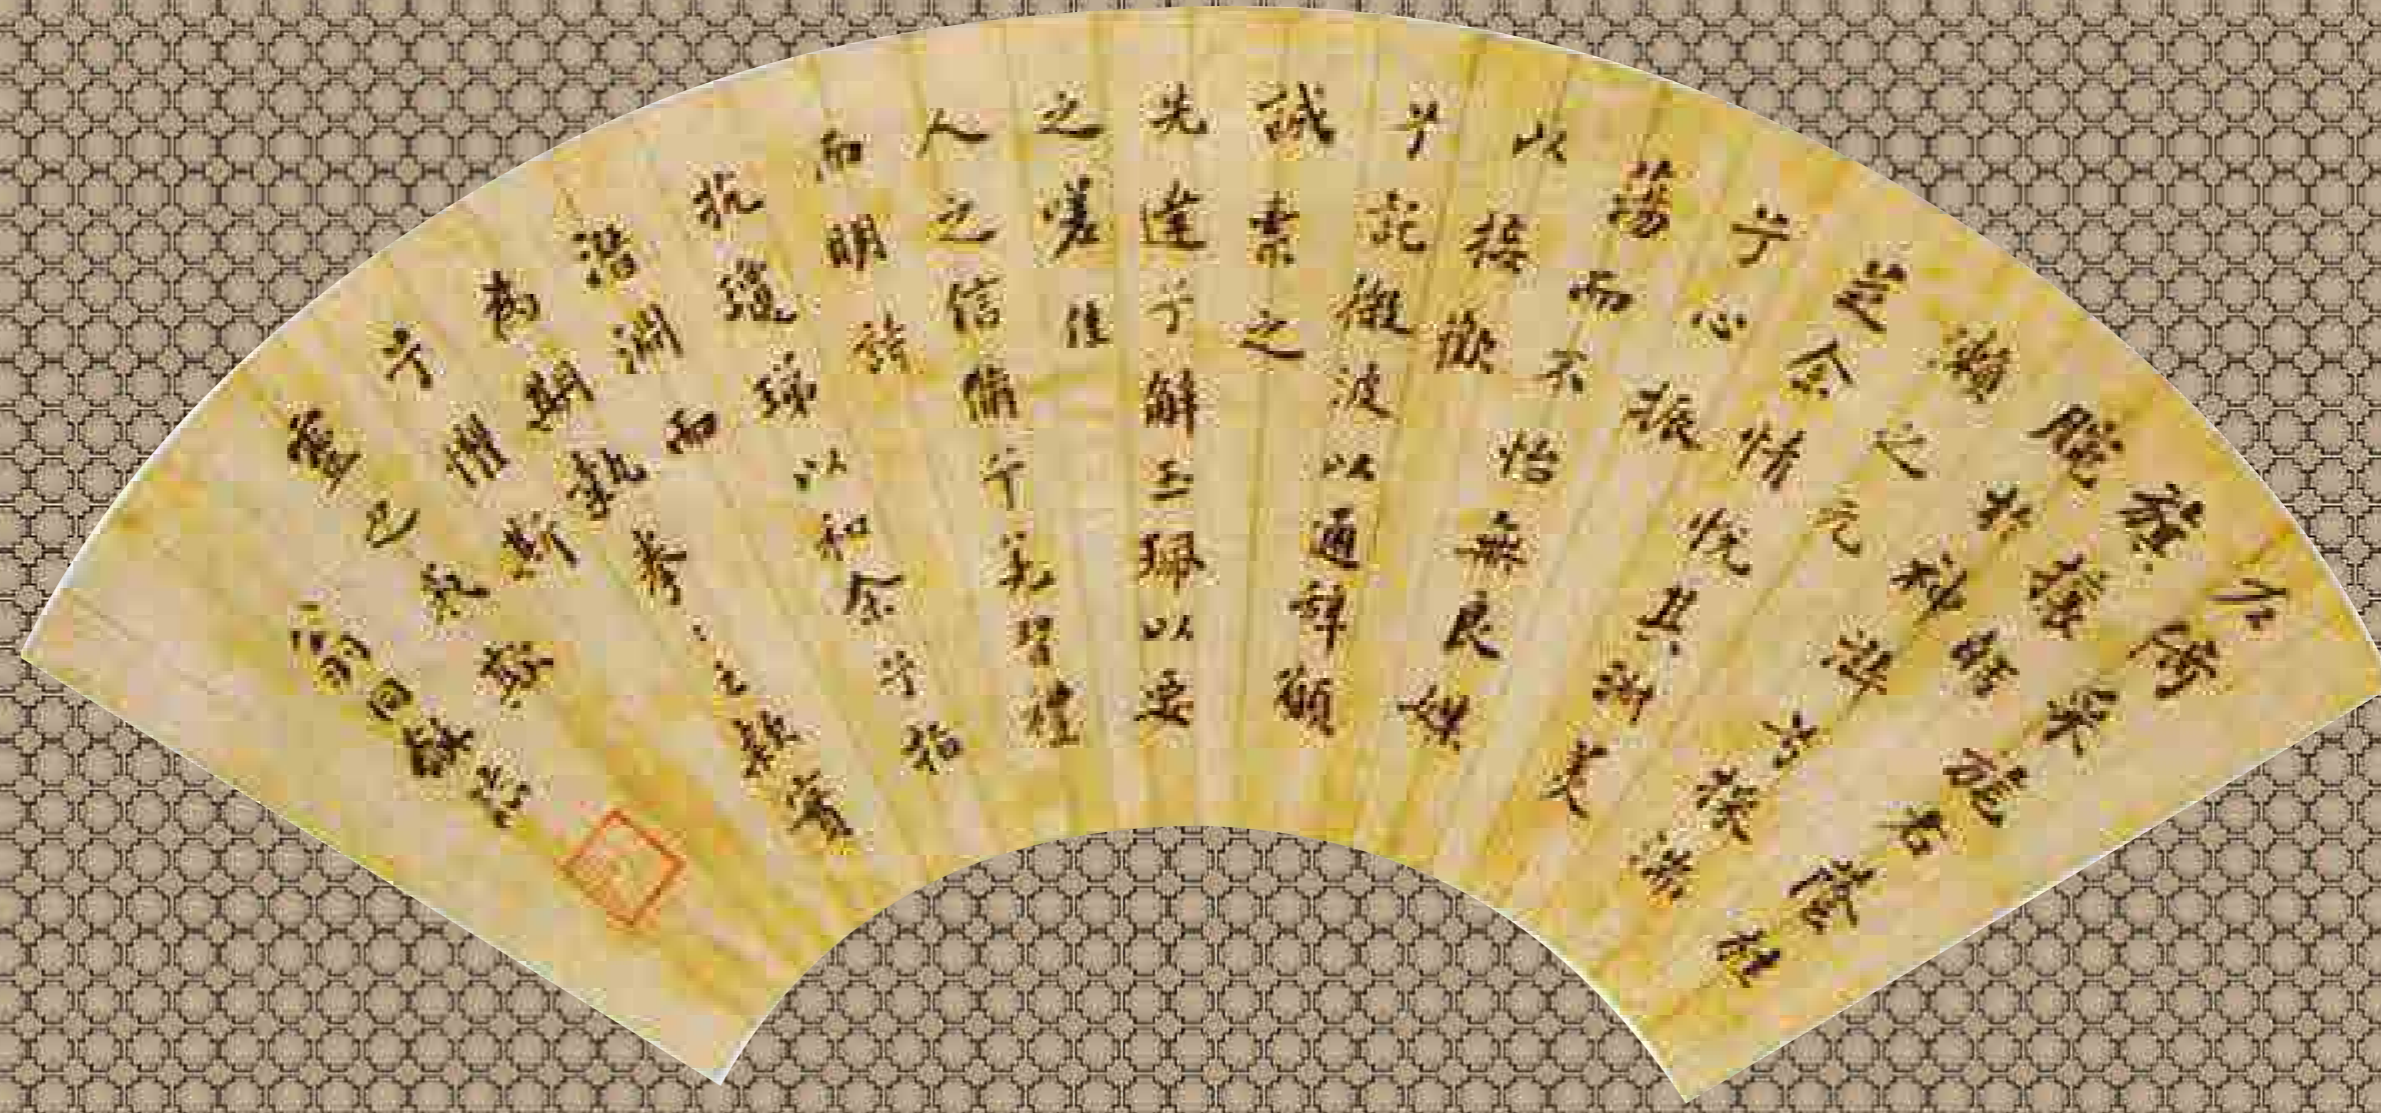 左倚采旄右蔭桂
旗攘皓
腕於神滸兮採湍
瀨之玄
芝余情悅其淑美
兮心振
蕩而不怡無良媒
以接歡
兮託微波以通辭願
誠素之
先達兮解玉珮以要
之嗟佳
人之信脩兮羌習禮
而明詩
抗瓊珶以和余兮指
潛淵而
為期執眷〻之款實
兮懼斯
靈之我欺
翁同龢